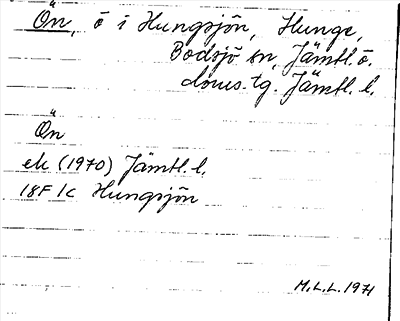 Ön, ö i Hungsjön, Hunge,
Bodsjö sn, Jämtl. ö.
doms.tg. Jämtl. l.
Ön
ek (1970) Jämtl. l.
18F 1c Hungsjön
M.L.L. 1971